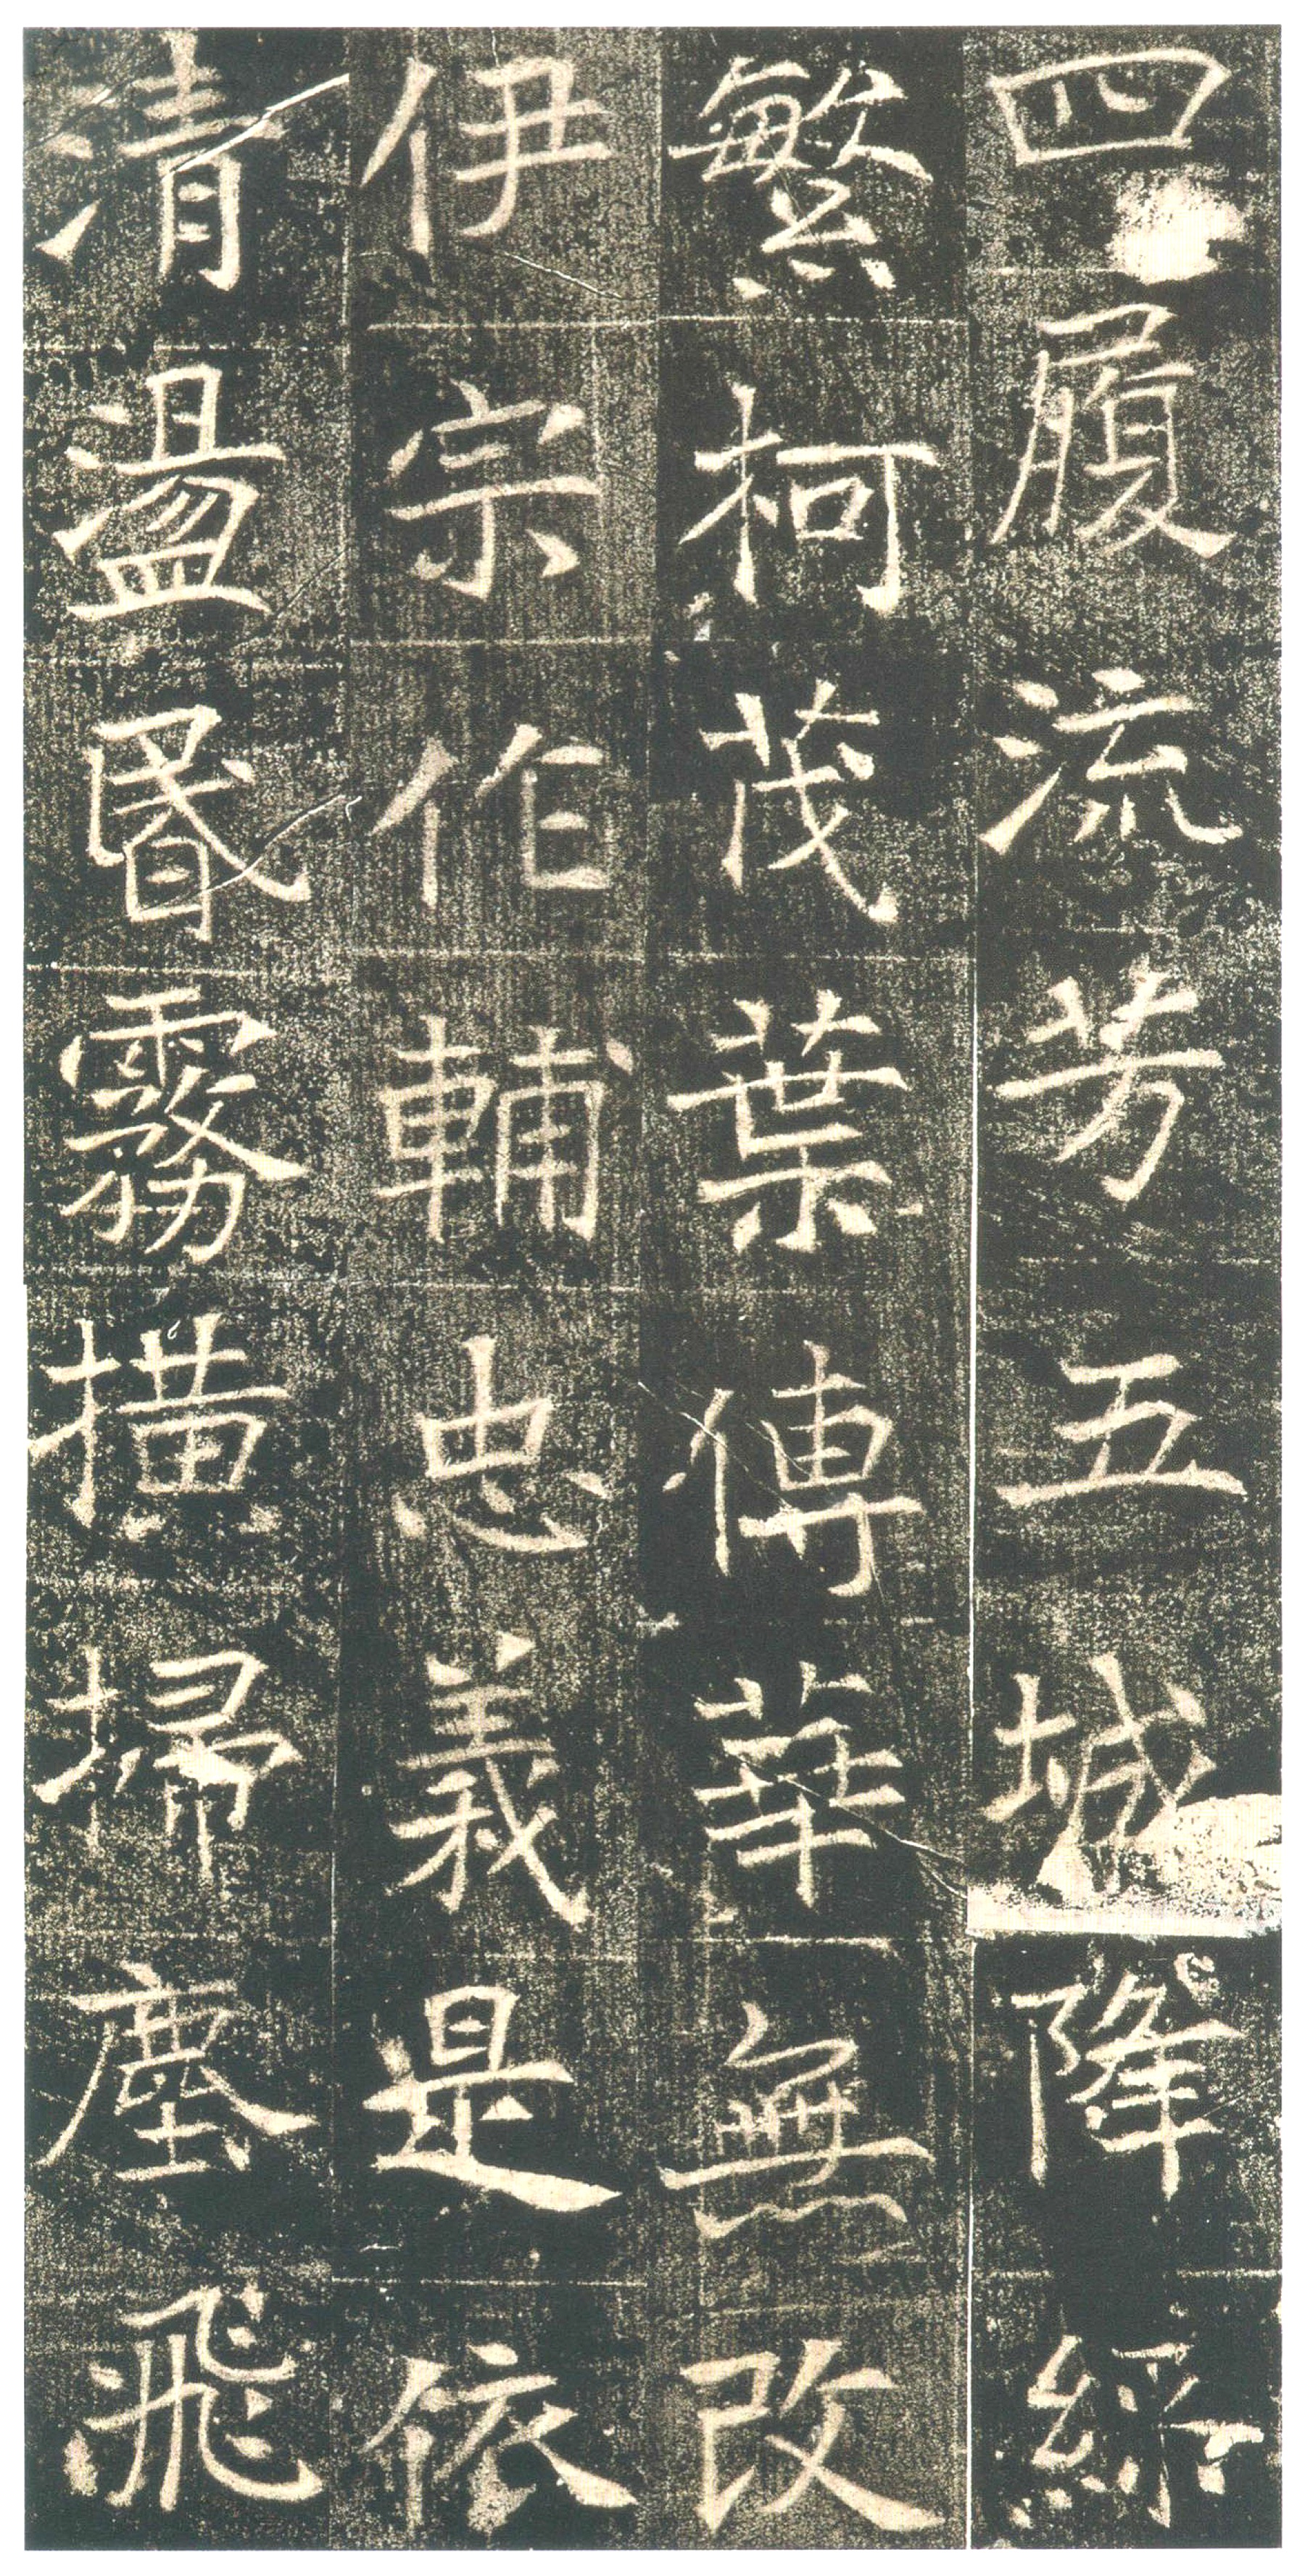 四履流芳五城降綵
繁柯茂葉傳華無改
伊宗作輔忠義是依
清盪昬霧撗埽塵飛